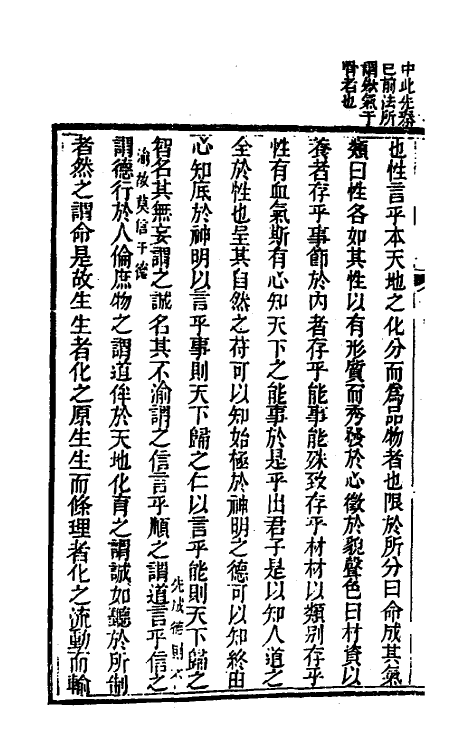 中此先發
已前法所
謂歛氣于
者也
也性言乎本天地之化分而爲品物者也限於所分曰命成其氣
類曰性各如其性以有形質而秀發於心徵於貌聲色曰材資以
養者存乎事節於內者存乎能事能殊致存乎材材以類別存乎
性有血氣斯有心知天下之能事於是乎出君子是以知人道之
全於性也呈其自然之符可以知始極於神明之德可以知終由
心知底於神明以言乎事則天下歸之仁以言乎能則天下歸之
先成德則
智名其無妄謂之誠名其不渝謂之信言乎順之謂道言乎信之
渝故莫信于德
謂德行於人倫庶物之謂道侔於天地化育之謂誠如聽於所制
者然之謂命是故生生者化之原生生而條理者化之流動而輸